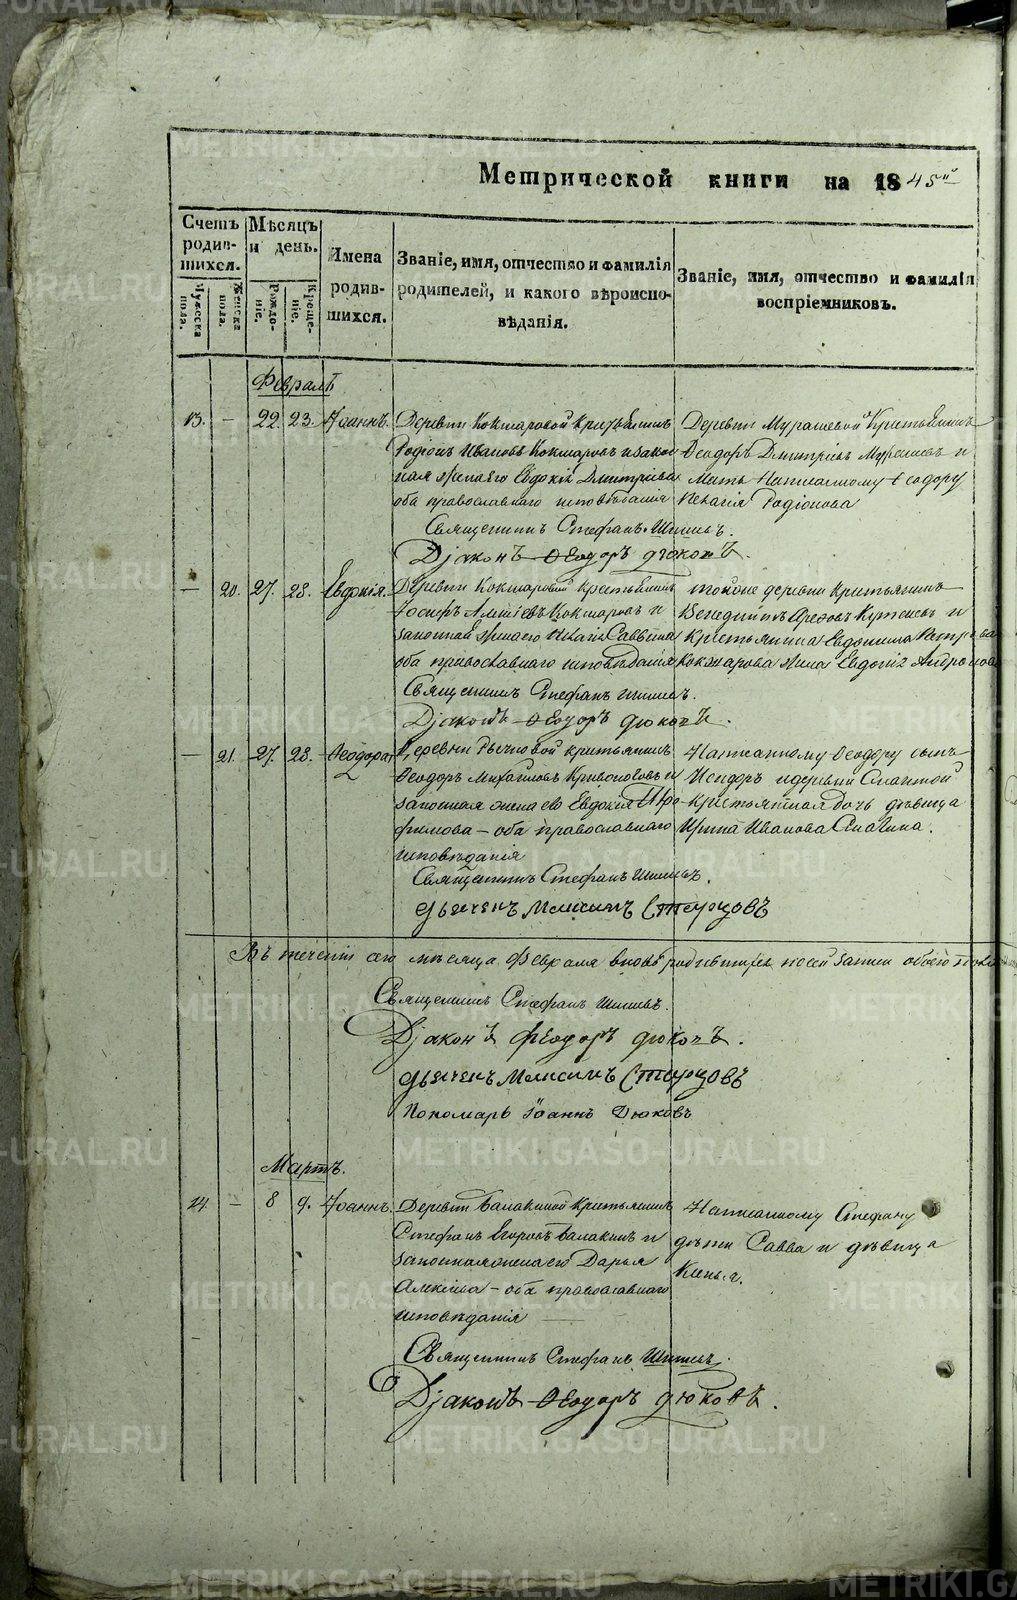 Метрической книги на 1845й
Счетъ родившихся.
Мѣсяцъ и день.
Имена родившихся.
Званіе, имя, отчество и фамилія родителей, и какого вѣроисповѣданія.
Званіе, имя, отчество и фамилія воспріемниковъ.
Мужеска пола.
Женска пола.
Рожденіе.
Крещеніе.
Февраль
13. – 22. 23. Іоаннъ.
Деревни Кокшаровой крестьянинъ
Родіонъ Ивановъ Кокшаровъ и закон
ная жена его Евдокія Дмитріева
оба православнаго исповѣданія
Деревни Мурашевой крестьянинъ
Ѳеодоръ Дмитріевъ и
Мать написанному Ѳеодору
Пелагія Родіонова
Священникъ Стефанъ
Діаконъ Ѳеодоръ Дюковъ.
– 20. 27. 28. Евдокія.
Деревни Кокшаровой крестьянинъ
Іосифъ Кокшаровъ и
законная жена его Пелагія Саввина
оба православнаго исповѣданія
тойже деревни крестьянинъ
и
крестьянина Евдокима Петрова
Кокшарова жена Евдокія Андронова
Священникъ Стефанъ
Діаконъ Ѳеодоръ Дюковъ.
– 21. 27. 28. Ѳеодора
Деревни крестьянинъ
Ѳеодоръ Михайловъ Кривоноговъ и
законная жена его Евдокія Тро-
фимова – оба православнаго
исповѣданія
Написанному Ѳеодору сынъ
Исидоръ и деревни
крестьянская дочь дѣвица
Ирина Иванова
Священникъ Стефанъ
Дьячекъ Максимъ Старцовъ
Въ теченіи сего мѣсяца Февраля вновь родившихся по сей записи обоего пола
Священникъ Стефанъ
Діаконъ Ѳеодоръ Дюковъ.
Дьячекъ Максимъ Старцовъ
Пономарь Іоаннъ Дюковъ
Мартъ.
14. – 8 9. Іоаннъ.
Деревни Балакиной крестьянинъ
Стефанъ Егоровъ Балакинъ и
законная жена его Дарья
Алексіева – оба православнаго
исповѣданія
Написанному Стефану
дѣти Савва и дѣвица
Священникъ Стефанъ
Діаконъ Ѳеодоръ Дюковъ.
METRIKI.GASO-URAL.RU